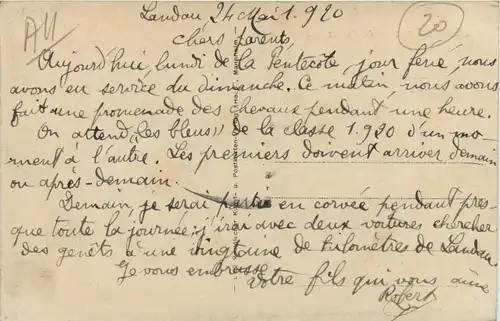 All
20
Landau, 24 Mai 1.920
Chers Parents,
Aujourd'hui, lundi de la Pentecôte, jour férié, nous
avons eu service du dimanche. Ce matin, nous avons
fait une promenade des chevaux pendant une heure.
On attend "les bleus" de la classe 1.920 d'un mo-
ment à l'autre. Les premiers doivent arriver demain
ou après-demain.
Demain, je serai parti en corvée pendant pres-
que toute la journée; j'irai avec deux voitures chercher
des genêts à une vingtaine de kilomètres de Landau
Je vous embrasse
Votre fils qui vous aime
Robert